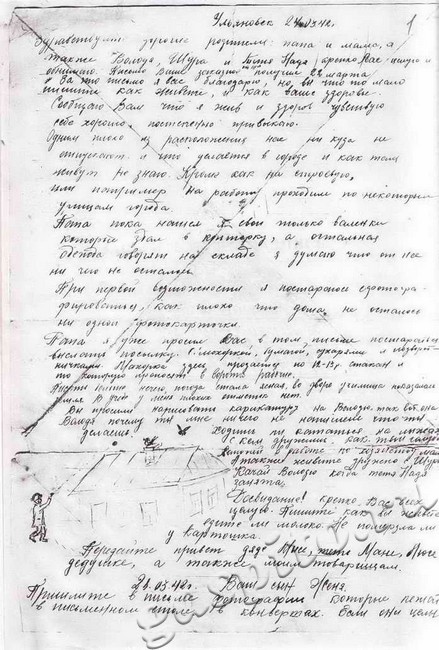 Ульяновск 24.03.42г. 1
Здравствуйте дорогие родители: папа и мама, а
также Володя, Шура и тётя Надя! крепко Вас целую и
обнимаю. Письмо Ваше заказное получил 22 марта
и за это письмо я Вас благодарю, но вы что то мало
пишите как живете, и как ваше здоровье.
Сообщаю Вам что я жив и здоров чувствую
себя хорошо, постепенно привыкаю.
Одним плохо из расположения нас ни куда не
отпускают и что делается в городе и как там
живут не знаю. Кроме как на строевую,
или например на работу проходим по некоторым
улицам города.
Папа пока нашел я свои только валенки
которые сдал в каптёрку, а остальная
одежда говорят на складе я думаю что от нее
ни чего не осталось.
При первой возможности я постараюсь сфотогра-
фироваться, как плохо что дома не осталось
ни одной фотокарточки
Папа я уже просил Вас, в том письме постарайтесь
выслать посылку. С махоркой, бумагой, сухарями и
Махорка здесь продается по 12-13р. стакан и
то которую приносят в ворота
погода стала ясная, во дворе училища показалась
земля. нет.
Вы просили написовать карикатуру на Володю. так вот она
Володя почему ты мне ничего не написал что ты
делаешь. Ходишь ли кататься на лыжах
с кем дружишь, как
помогай в работе по хозяйству маме
А также живите дружно с Шурой
Качай Володю когда тетя Надя
занята.
Досвидание! крепко Вас всех
целую. Пишите как вы живете
едите ли молоко. Не померзла ли
у Вас картошка.
Передайте привет дяде тете Мане, Люсе
дедушке, а также моим товарищам.
24.03.42г. Ваш сын Женя.
Пришлите в письме фотографии которые лежат
в письменном столе, в конвертах. Если они целы